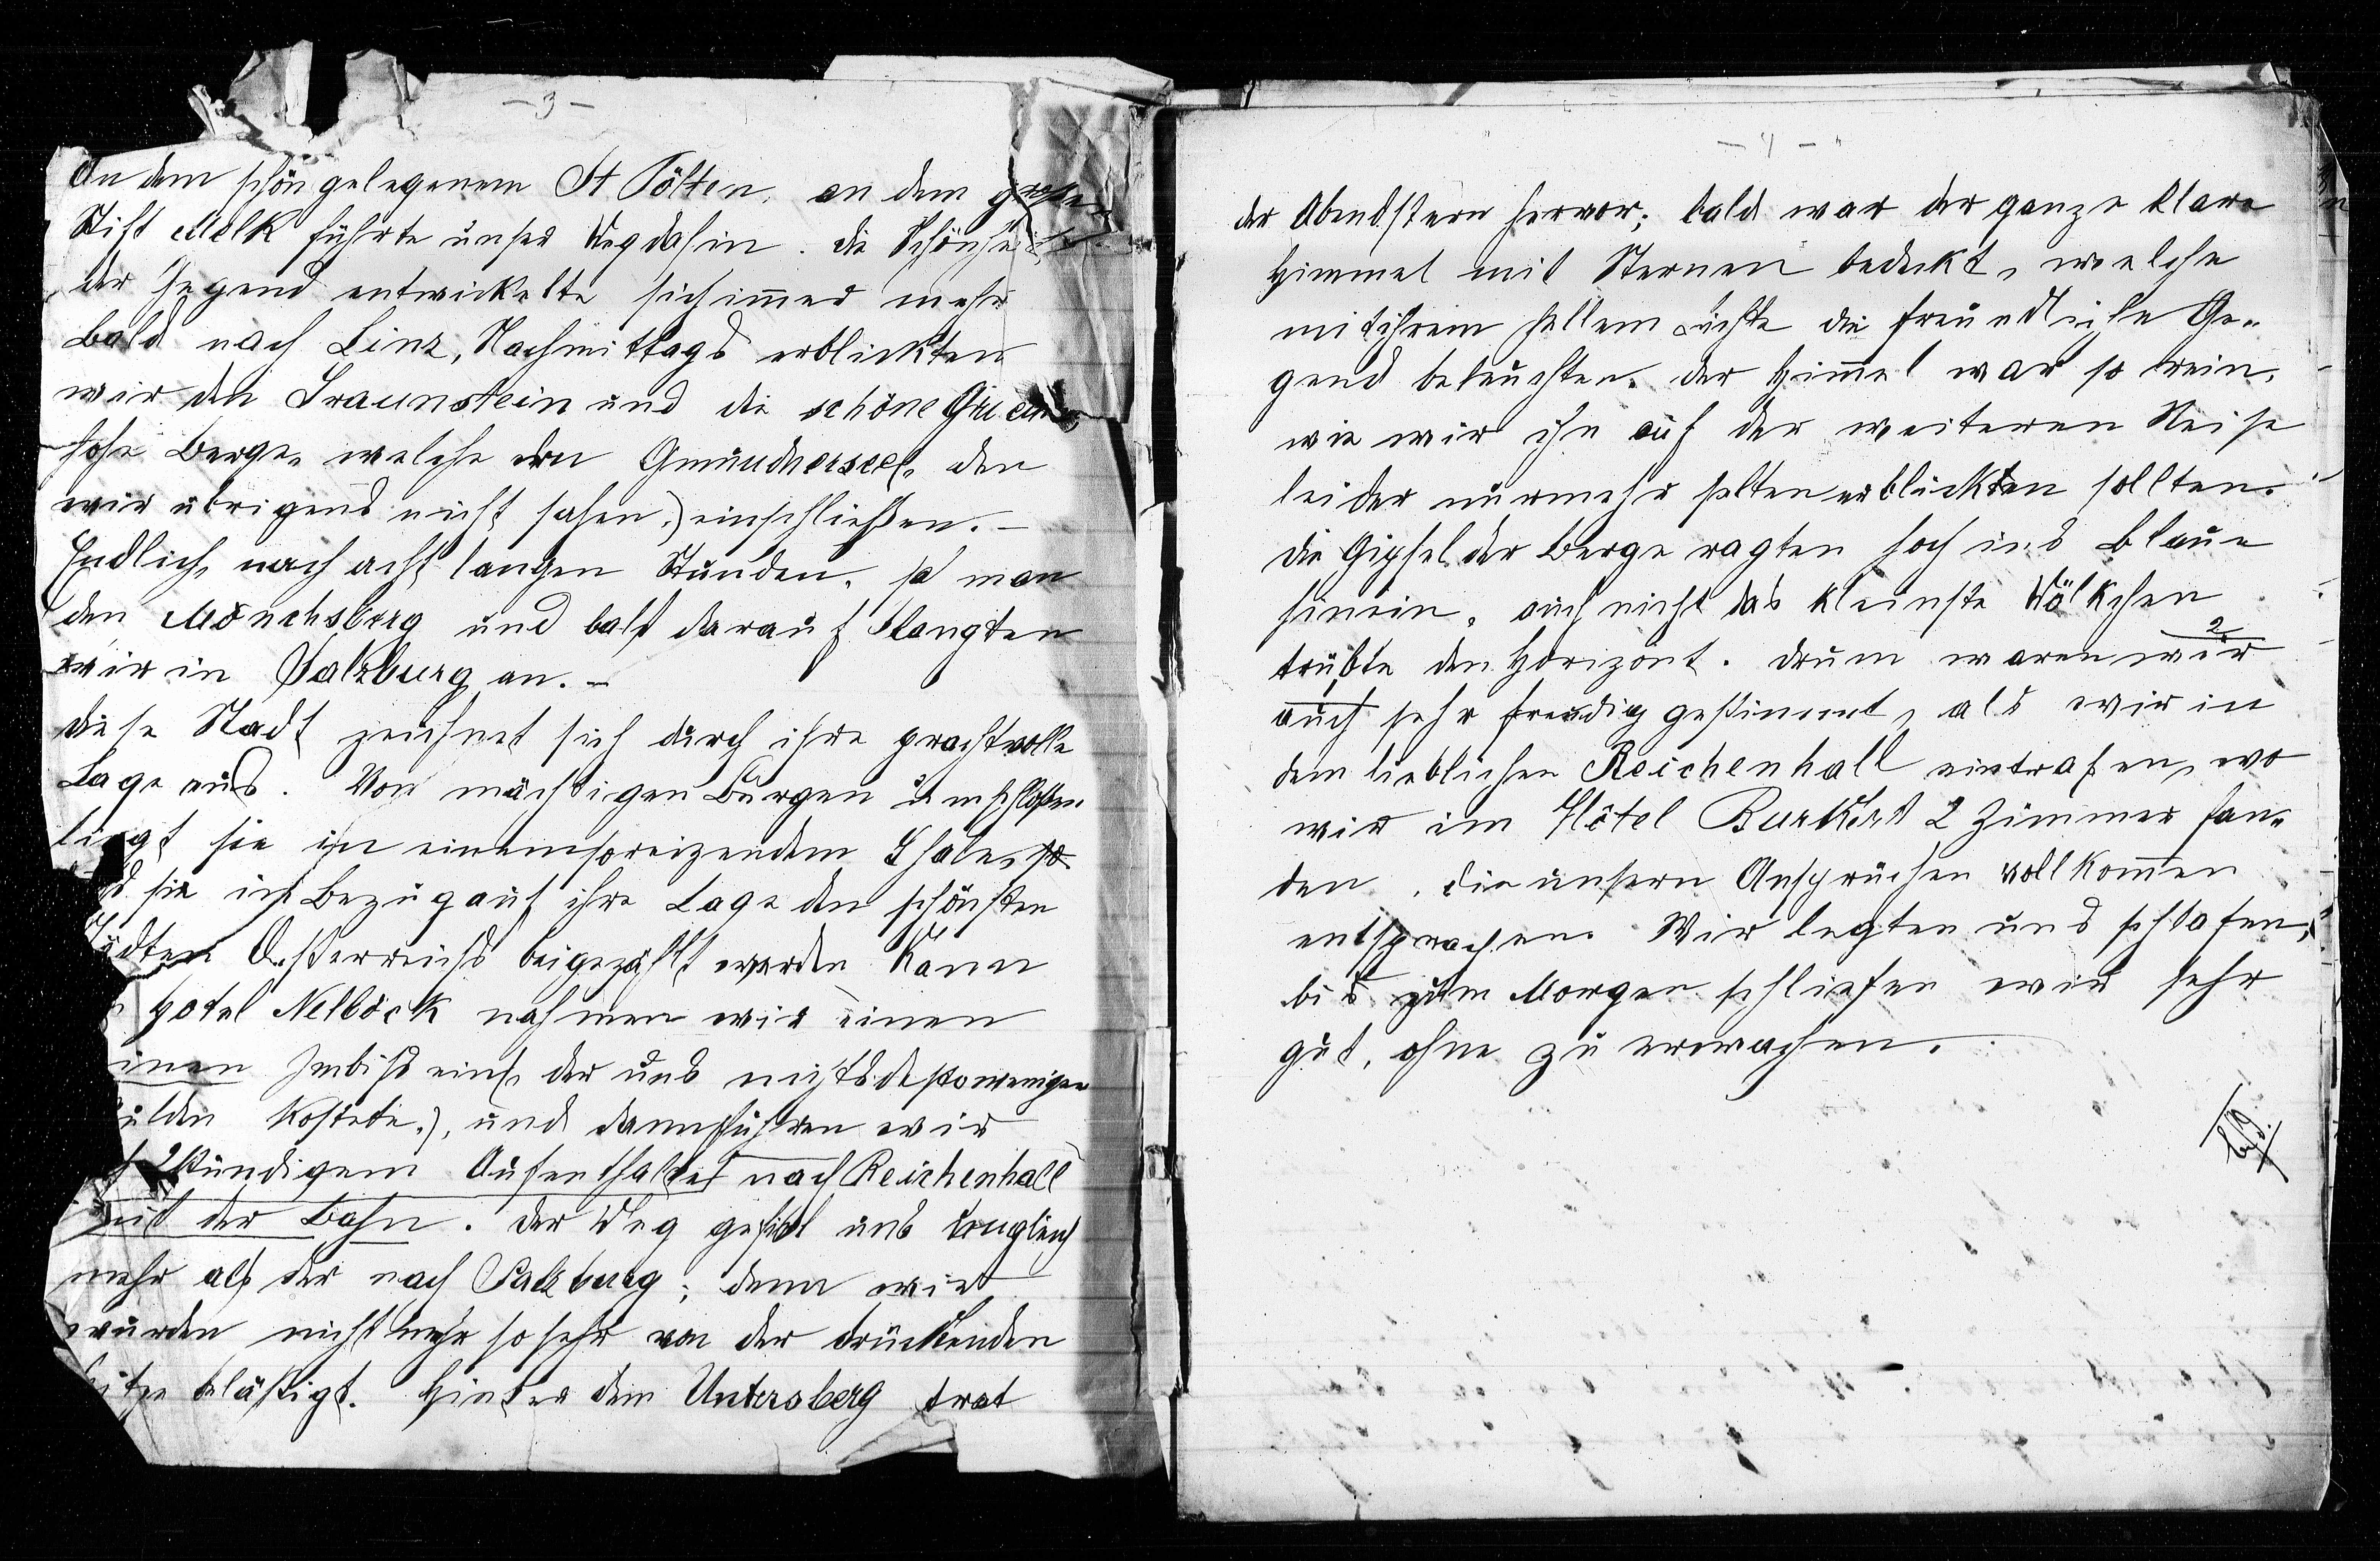 - 3 -
An dem schön gelegenem St Pölten, an dem großen
Stift Melk führte unser Weg dahin. die Schönheit
der Gegend entwickelte sich im̅er mehr
bald nach Linz, Nachmittags erblickten
wir den Traunstein und die schöne
hohe Berge, welche den Gmundnersee(, den
wir übrigens nicht sahen,) einschließen. -
Endlich, nach acht langen Stunden, sa man
den Mönchsberg und balt darauf langten
wir in Salzburg an. -
diese Stadt zeichnet sich durch ihre prachtvolle
Lage aus. Von mächtigen Bergen umschloßen
liegt sie in einem so reizendem Thale, so
d sie in Bezug auf ihre Lage den schönsten
ädten Oesterreichs beigezählt werden kann
Hotel Nelböck nahmen wir einen
inen Imbiß ein(, der uns nichtsdestoweniger
ulden kostete.), und dann fuhren wir
2stündigem Aufenthaltet nach Reichenhall
mit der Bahn. der Weg gefiel uns ungleich
mehr als der nach Salzburg; denn wir
wurden nicht mehr so sehr von der drückenden
itze beläßtigt. Hinter dem Untersberg trat
- 4 -
der Abendstern hervor; bald war der ganze klare
Himmel mit Sternen bedekt, welche
mit ihrem hellem Lichte die freundliche Ge-
gend beleuchten. der Him̅el war so rein,
wie wir ihn auf der weiteren Reise
leider nurmehr selten erblickten sollten.
die Gipfel der Berge ragten hoch ins blaue
hinein, auch nicht das kleinste Wölkchen
trübte den Horizont. drum waren wir
2
auch sehr freudig gestimmt, als wir in
dem lieblichen Reichenhall eintrafen, wo
wir im Hôtel Burkert 2 Zimmer fan-
den, die unsern Ansprüchen vollkom̅en
entsprachen. Wir legten uns schlafen,
bis zum Morgen schliefen wir sehr
gut, ohne zu erwachen.